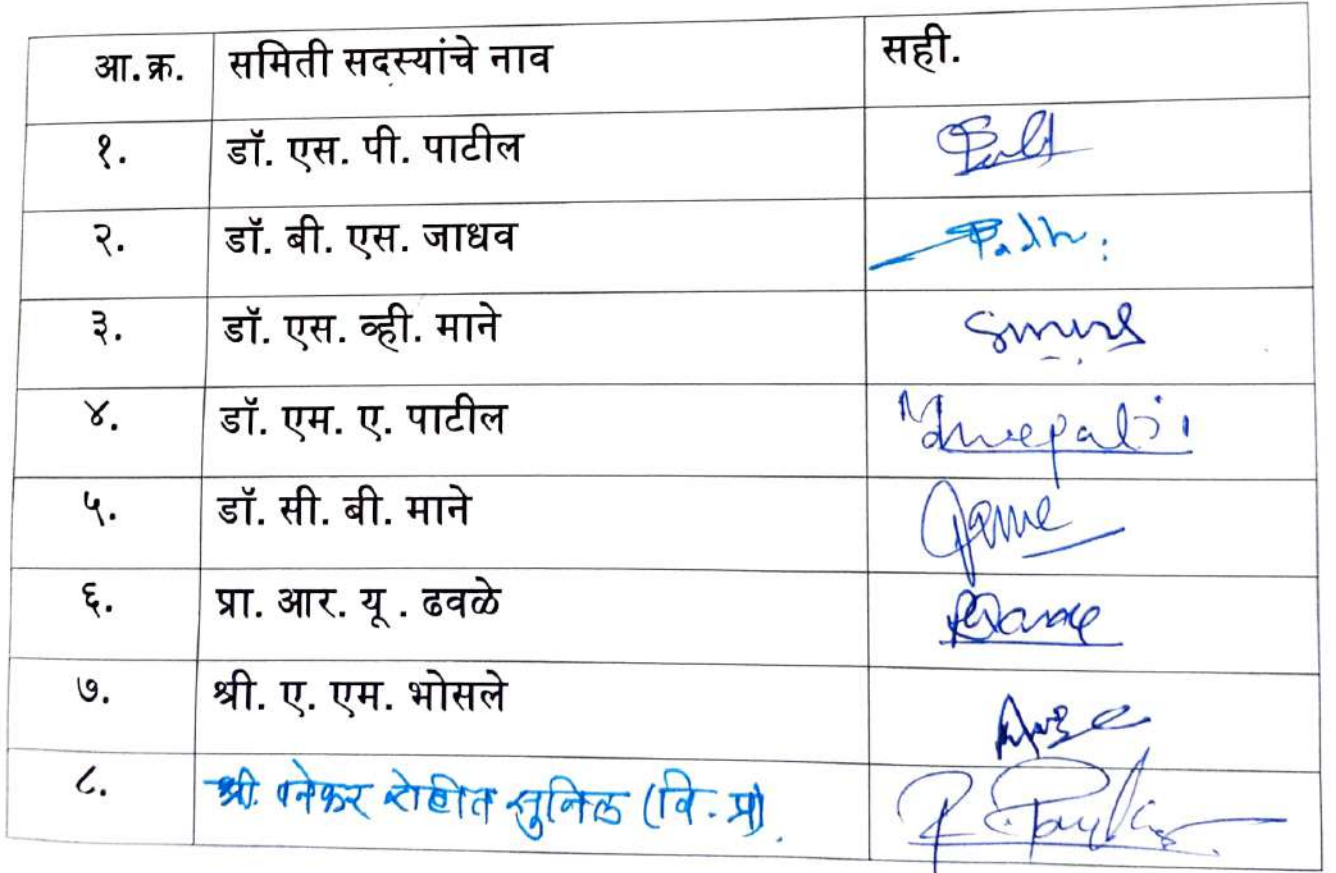 आ.क्र. समिती सदस्यांचे नाव सही.
१. डॉ. एस. पी. पाटील
२. डॉ. बी. एस. जाधव
३. डॉ. एस. व्ही. माने
४. डॉ. एम. ए. पाटील
५. डॉ. सी. बी. माने
६. प्रा. आर. यू . ढवळे
७. श्री. ए. एम. भोसले
८. श्री. पनेकर रोहीत सुनिल (वि. प्र)